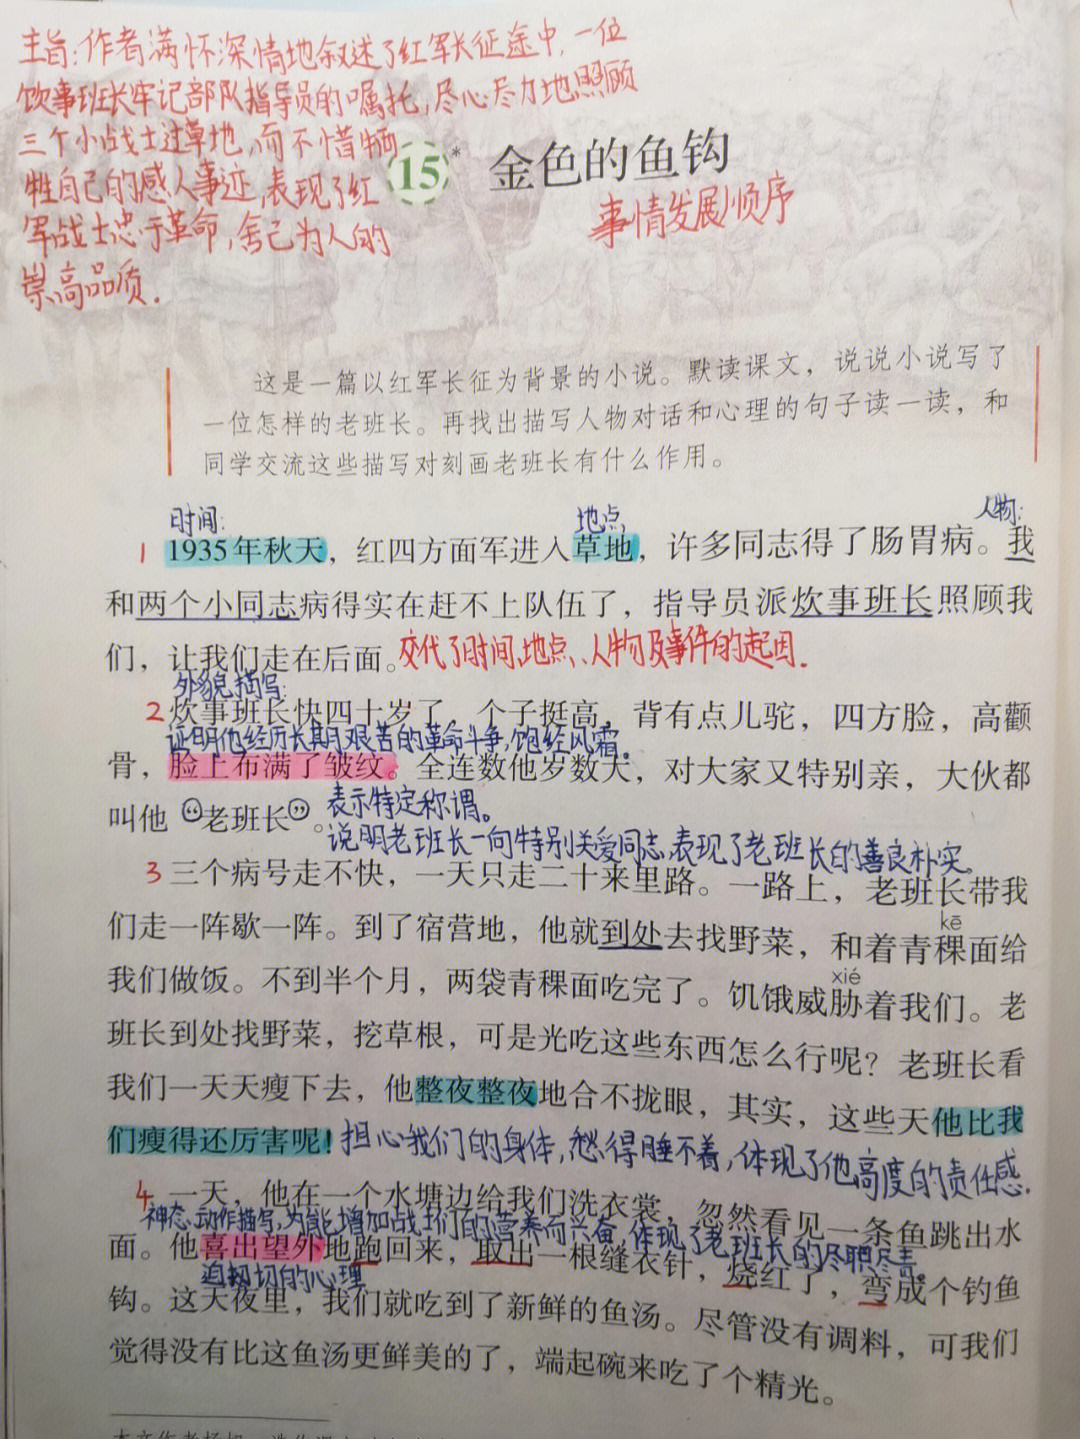 主旨:作者满怀深情地叙述了红军长征途中,一位
饮事班长牢记部队指导员的嘱托,尽心尽力地照顾
三个小战士过草地,而不惜牺
牲自己的感人事迹,表现了红
军战士忠于革命,舍己为人的
崇高品质.
15* 金色的鱼钩
事情发展顺序
这是一篇以红军长征为背景的小说。默读课文,说说小说写了
一位怎样的老班长。再找出描写人物对话和心理的句子读一读,和
同学交流这些描写对刻画老班长有什么作用。
时间: 地点 人物:
1 1935年秋天,红四方面军进入草地,许多同志得了肠胃病。我
和两个小同志病得实在赶不上队伍了,指导员派炊事班长照顾我
们,让我们走在后面。交代了时间,地点、人物及事件的起因.
外貌描写:
2 炊事班长快四十岁了,个子挺高,背有点儿驼,四方脸,高颧
证明他经历长期艰苦的革命斗争,饱经风霜。
骨,脸上布满了皱纹。全连数他岁数大,对大家又特别亲,大伙都
叫他“老班长”。表示特定称谓。
说明老班长一向特别关爱同志,表现了老班长的善良朴实。
3 三个病号走不快,一天只走二十来里路。一路上,老班长带我
kē
们走一阵歇一阵。到了宿营地,他就到处去找野菜,和着青稞面给
xié
我们做饭。不到半个月,两袋青稞面吃完了。饥饿威胁着我们。老
班长到处找野菜,挖草根,可是光吃这些东西怎么行呢?老班长看
我们一天天瘦下去,他整夜整夜地合不拢眼,其实,这些天他比我
们瘦得还厉害呢!担心我们的身体,愁得睡不着,体现了他高度的责任感.
4 一天,他在一个水塘边给我们洗衣裳,忽然看见一条鱼跳出水
神态,动作描写,为能增加战士们的营养而兴奋,体现了老班长的尽职尽责
面。他喜出望外地跑回来,取出一根缝衣针,烧红了,弯成个钓鱼
迫切的心理
钩。这天夜里,我们就吃到了新鲜的鱼汤。尽管没有调料,可我们
觉得没有比这鱼汤更鲜美的了,端起碗来吃了个精光。